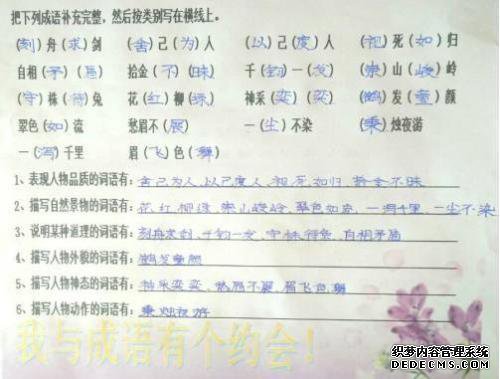 把下列成语补充完整,然后按类别写在横线上。
(刻)舟(求)剑 (舍)己(为)人 (以)己(度)人 (视)死(如)归
自相(矛)(盾) 拾金(不)(昧) 千(钧)一(发) (崇)山(峻)岭
(守)株(待)兔 花(红)柳(绿) 神采(奕)(奕) (鹤)发(童)颜
翠色(如)流 愁眉不(展) (一)尘)不染 (秉)烛夜游
一(泻)千里 眉(飞)色(舞)
1、表现人物品质的词语有:舍己为人、以己度人、视死如归、拾金不昧
2、描写自然景物的词语有:花红柳绿、崇山峻岭、翠色如流、一泻千里、一尘不染
3、说明某种道理的词语有:刻舟求剑、千钧一发、守株待兔、自相矛盾
4、描写人物外貌的词语有:鹤发童颜
5、描写人物神态的词语有:神采奕奕、愁眉不展、眉飞色舞
6、描写人物动作的词语有:秉烛夜游
我与成语有个约会!
织梦内容管理系统
DEDECMS.COM